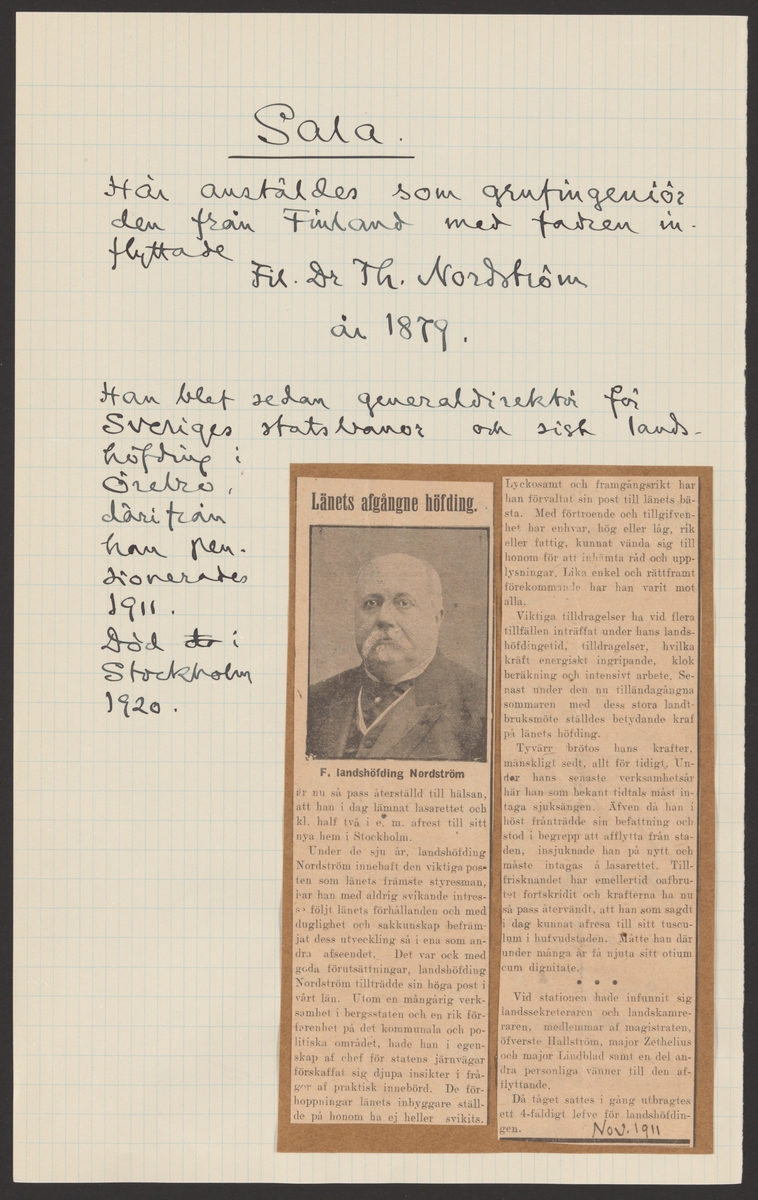 Sala.
Här anstäldes som grufingeniör
den från Finland med fadren in-
flyttade
Fil. Dr Th. Nordström
år 1879.
Han blef sedan generaldirektör för
Sveriges statsbanor och sist lands-
höfding i
Örebro,
därifrån
han pen-
sionerades
1911.
Död i
Stockholm
1920.
Länets afgångne höfding.
F. landshöfding Nordström
är nu så pass återställd till hälsan,
att han i dag lämnat lasarettet och
kl. half två i e. m. afrest till sitt
nya hem i Stockholm.
Under de sju år, landshöfding
Nordström innehaft den viktiga pos-
ten som länets främste styresman,
har han med aldrig svikande intres-
se följt länets förhållanden och med
duglighet och sakkunskap befräm-
jat dess utveckling så i ena som an-
dra afseendet. Det var ock med
goda förutsättningar, landshöfding
Nordström tillträdde sin höga post i
vårt län. Utom en mångårig verk-
samhet i bergsstaten och en rik för-
farenhet på det kommunala och po-
litiska området, hade han i egen-
skap af chef för statens järnvägar
förskaffat sig djupa insikter i frå-
gor af praktisk innebörd. De för-
hoppningar länets inbyggare ställ-
de på honom ha ej heller svikits.
Lyckosamt och framgångsrikt har
han förvaltat sin post till länets bä-
sta. Med förtroende och tillgifven-
het har enhvar, hög eller låg, rik
eller fattig, kunnat vända sig till
honom för att inhämta råd och upp-
lysningar. Lika enkel och rättframt
förekommande har han varit mot
alla.
Viktiga tilldragelser ha vid flera
tillfällen inträffat under hans lands-
höfdingetid, tilldragelser, hvilka
kräft energiskt ingripande, klok
beräkning och intensivt arbete. Se-
nast under den nu tilländagångna
sommaren med dess stora landt-
bruksmöte ställdes betydande kraf
på länets höfding.
Tyvärr brötos hans krafter,
mänskligt sedt, allt för tidigt. Un-
der hans senaste verksamhetsår
här han som bekant tidtals måst in-
taga sjuksängen. Äfven då han i
höst frånträdde sin befattning och
stod i begrepp att afflytta från sta-
den, insjuknade han på nytt och
måste intagas å lasarettet. Till-
frisknandet har emellertid oafbru-
tet fortskridit och krafterna ha nu
så pass återvändt, att han som sagdt
i dag kunnat afresa till sitt tuscu-
lum i hufvudstaden. Måtte han där
under många år få njuta sitt otium
cum dignitate.
• • •
Vid stationen hade infunnit sig
landssekreteraren och landskamre-
raren, medlemmar af magistraten,
öfverste Hallström, major Zethelius
och major Lindblad samt en del an-
dra personliga vänner till den af-
flyttande.
Då tåget sattes i gång utbragtes
ett 4-faldigt lefve för landshöfdin-
gen. Nov. 1911